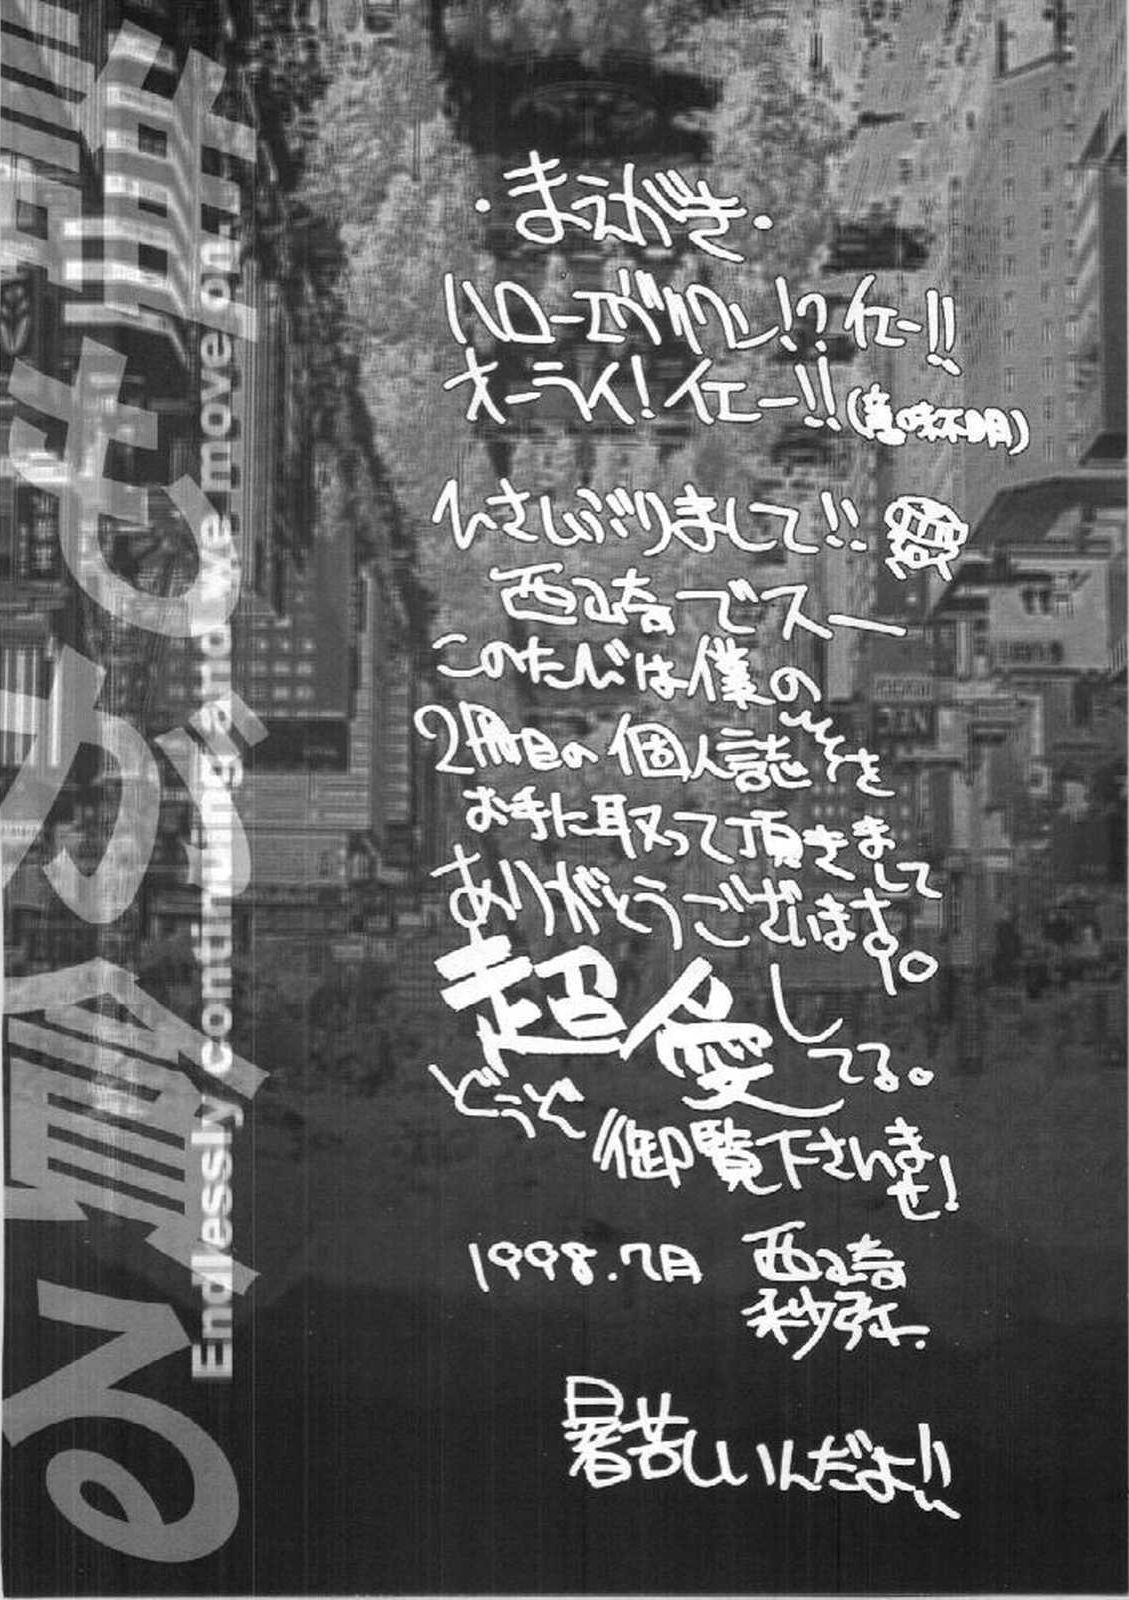 ・まえがき・
ハローエヴリワン!?イエー!!
オーライ!イエー!!(意味不明)
ひさしぶりまして!!
西崎でスー
このたびは僕の
2冊目の個人誌を
お手に取って頂きまして
ありがとうございます。
超愛してる。
どうぞ御覧下さいませ!
1998.7月 西崎
秒弥.
暑苦しいんだよ!!
Endlessly continuing and we move on.